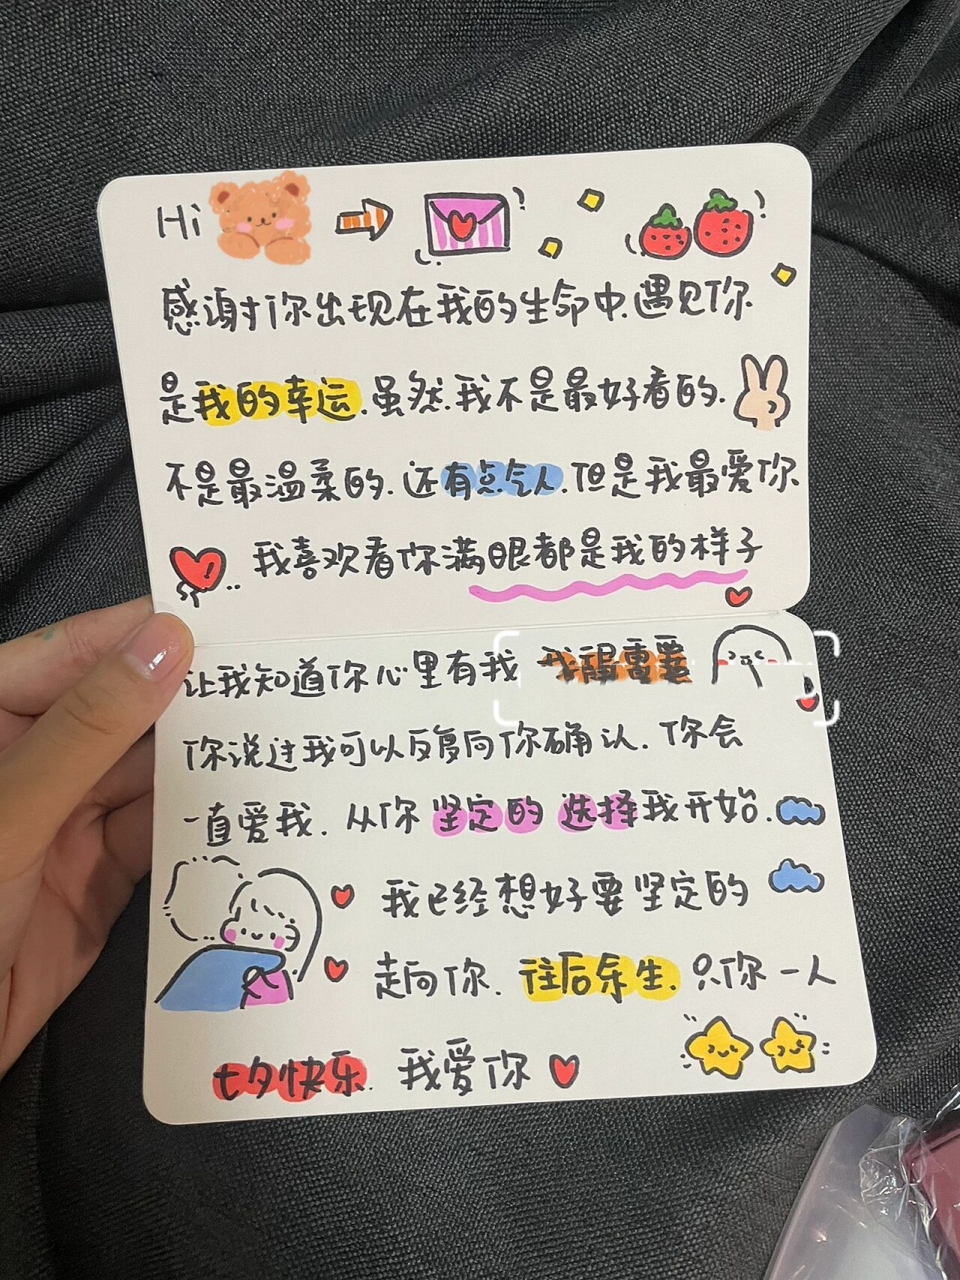 Hi
感谢你出现在我的生命中.遇见你
是我的幸运.虽然.我不是最好看的.
不是最温柔的.还有点气人.但是我最爱你
我喜欢看你满眼都是我的样子
让我知道你心里有我
你说过我可以反复向你确认.你会
一直爱我.从你坚定的选择我开始.
我已经想好要坚定的
走向你.往后余生.只你一人
七夕快乐.我爱你